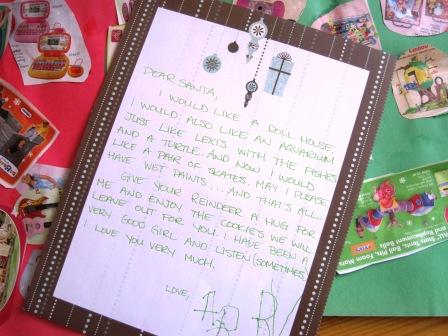 DEAR SANTA,
I WOULD LIKE A DOLL HOUSE.
I WOULD ALSO LIKE AN AQUARIUM
JUST LIKE LEXI'S WITH THE FISHES
AND A TURTLE. AND NOW I WOULD
LIKE A PAIR OF SKATES. MAY I PLEASE
HAVE WET PAINTS... AND THAT'S ALL.
GIVE YOUR REINDEER A HUG FOR
ME AND ENJOY THE COOKIES WE WILL
LEAVE OUT FOR YOU. I HAVE BEEN A
VERY GOOD GIRL AND LISTEN (SOMETIMES)
I LOVE YOU VERY MUCH.
LOVE,